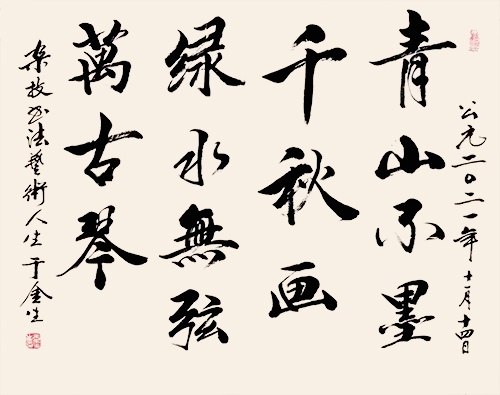 公元二〇二一年十一月十四日
青山不墨
千秋画
绿水無弦
萬古琴
书法藝術人生于金生